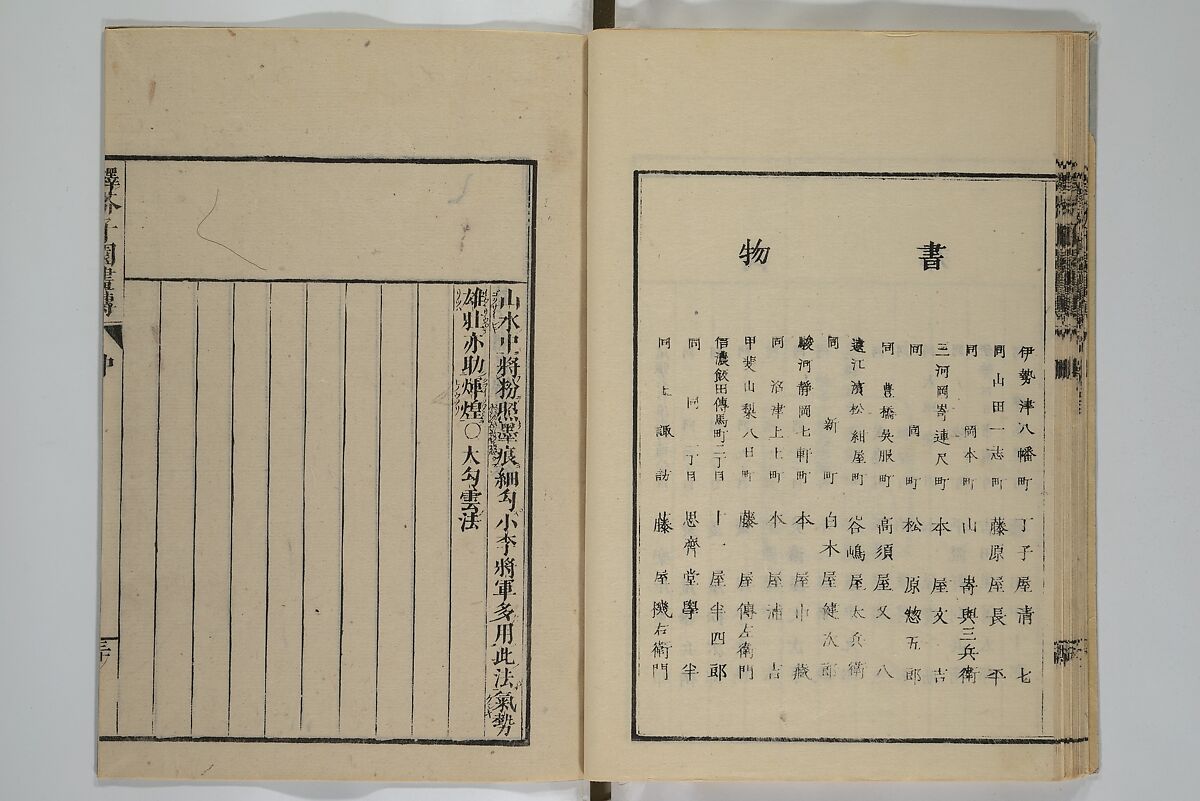 書物
伊勢津八幡町 丁子屋清七
同山田一志町 藤原屋長平
同 岡本町 山嵜與三兵衛
三河岡嵜連尺町 本屋文吉
同 同町 松原惣五郎
同 豊橋吳服町 高須屋又八
遠江濱松紺屋町 谷嶋屋太兵衛
同 新町 白木屋健次郎
駿河静岡七軒町 本屋市藏
同 沼津上土町 本屋浦吉
甲斐山梨八日町 藤屋傳左衛門
信濃飯田傳馬町二丁目 十一屋半四郎
同 同一丁目 思齊堂學半
同 上諏訪 藤屋機右衛門
山水中將粉照墨痕細勾小李將軍多用此法氣勢
雄壯亦助煇煌○大勾雲法
譯芥子園畫傳